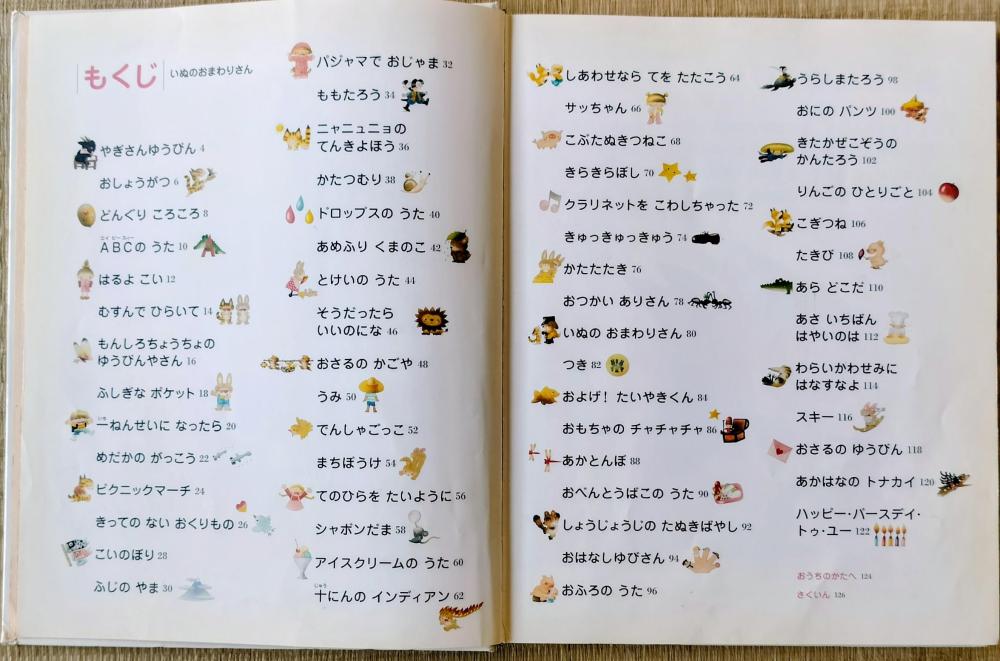 もくじ
いぬのおまわりさん
やぎさんゆうびん 4
おしょうがつ 6
どんぐり ころころ 8
エイ ビー スィー
ABCの うた 10
はるよ こい 12
むすんで ひらいて 14
もんしろちょうちょの
ゆうびんやさん 16
ふしぎな ポケット 18
いち
一ねんせいに なったら 20
めだかの がっこう 22
ピクニックマーチ 24
きっての ない おくりもの 26
こいのぼり 28
ふじの やま 30
パジャマで おじゃま 32
ももたろう 34
ニャニュニョの
てんきよほう 36
かたつむり 38
ドロップスの うた 40
あめふり くまのこ 42
とけいの うた 44
そうだったら
いいのにな 46
おさるの かごや 48
うみ 50
でんしゃごっこ 52
まちぼうけ 54
てのひらを たいように 56
シャボンだま 58
アイスクリームの うた 60
じゅう
十にんの インディアン 62
しあわせなら てを たたこう 64
サッちゃん 66
こぶたぬきつねこ 68
きらきらぼし 70
クラリネットを こわしちゃった 72
きゅっきゅっきゅう 74
かたたたき 76
おつかい ありさん 78
いぬの おまわりさん 80
つき 82
およげ! たいやきくん 84
おもちゃの チャチャチャ 86
あかとんぼ 88
おべんとうばこの うた 90
しょうじょうじの たぬきばやし 92
おはなしゆびさん 94
おふろの うた 96
うらしまたろう 98
おにの パンツ 100
きたかぜこぞうの
かんたろう 102
りんごの ひとりごと 104
こぎつね 106
たきび 108
あら どこだ 110
あさ いちばん
はやいのは 112
わらいかわせみに
はなすなよ 114
スキー 116
おさるの ゆうびん 118
あかはなの トナカイ 120
ハッピー・バースデイ・
トゥ・ユー 122
おうちのかたへ 124
さくいん 126